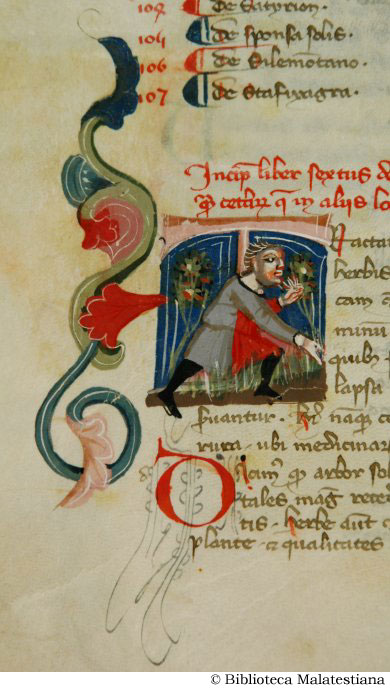 105 De Satyrion.
105 De sponsa solis.
106 De Silemōtano.
107 De Stafixagra.
Incip̄ liber sextus de
in aliis lo
Tractat
herbis
cam
minui
quibꝰ
lapsa
ſuantur. naq̄ co
rura. ubi medicinar
Dicam' arbor sol
tales mag rete
tis. herbe aut c
plante. qualitates
© Biblioteca Malatestiana